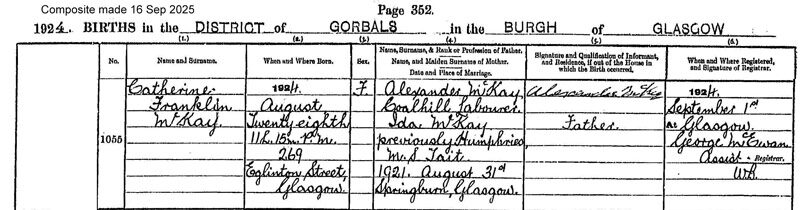 Composite made 16 Sep 2025
Page 352.
1924. BIRTHS in the DISTRICT of GORBALS in the BURGH of GLASGOW
(1.) (2.) (3.) (4.) (5.) (6.)
No.
Name and Surname.
When and Where Born.
Sex.
Name, Surname, & Rank or Profession of Father.
Name, and Maiden Surname of Mother.
Date and Place of Marriage.
Signature and Qualification of Informant,
and Residence, if out of the House in
which the Birth occurred.
When and Where Registered,
and Signature of Registrar.
1055
Catherine
Franklin
McKay
1924.
August
Twenty eighth
11h. 15m. P.M.
269
Eglinton Street,
Glasgow.
F.
Alexander McKay
Coalhill Labourer
Ida McKay
previously Humphries,
M.S. Tait
1921. August 31st
Springburn, Glasgow.
Alexander McKay
Father.
1924.
September 1st
At Glasgow.
George McEwan
Assist. Registrar.